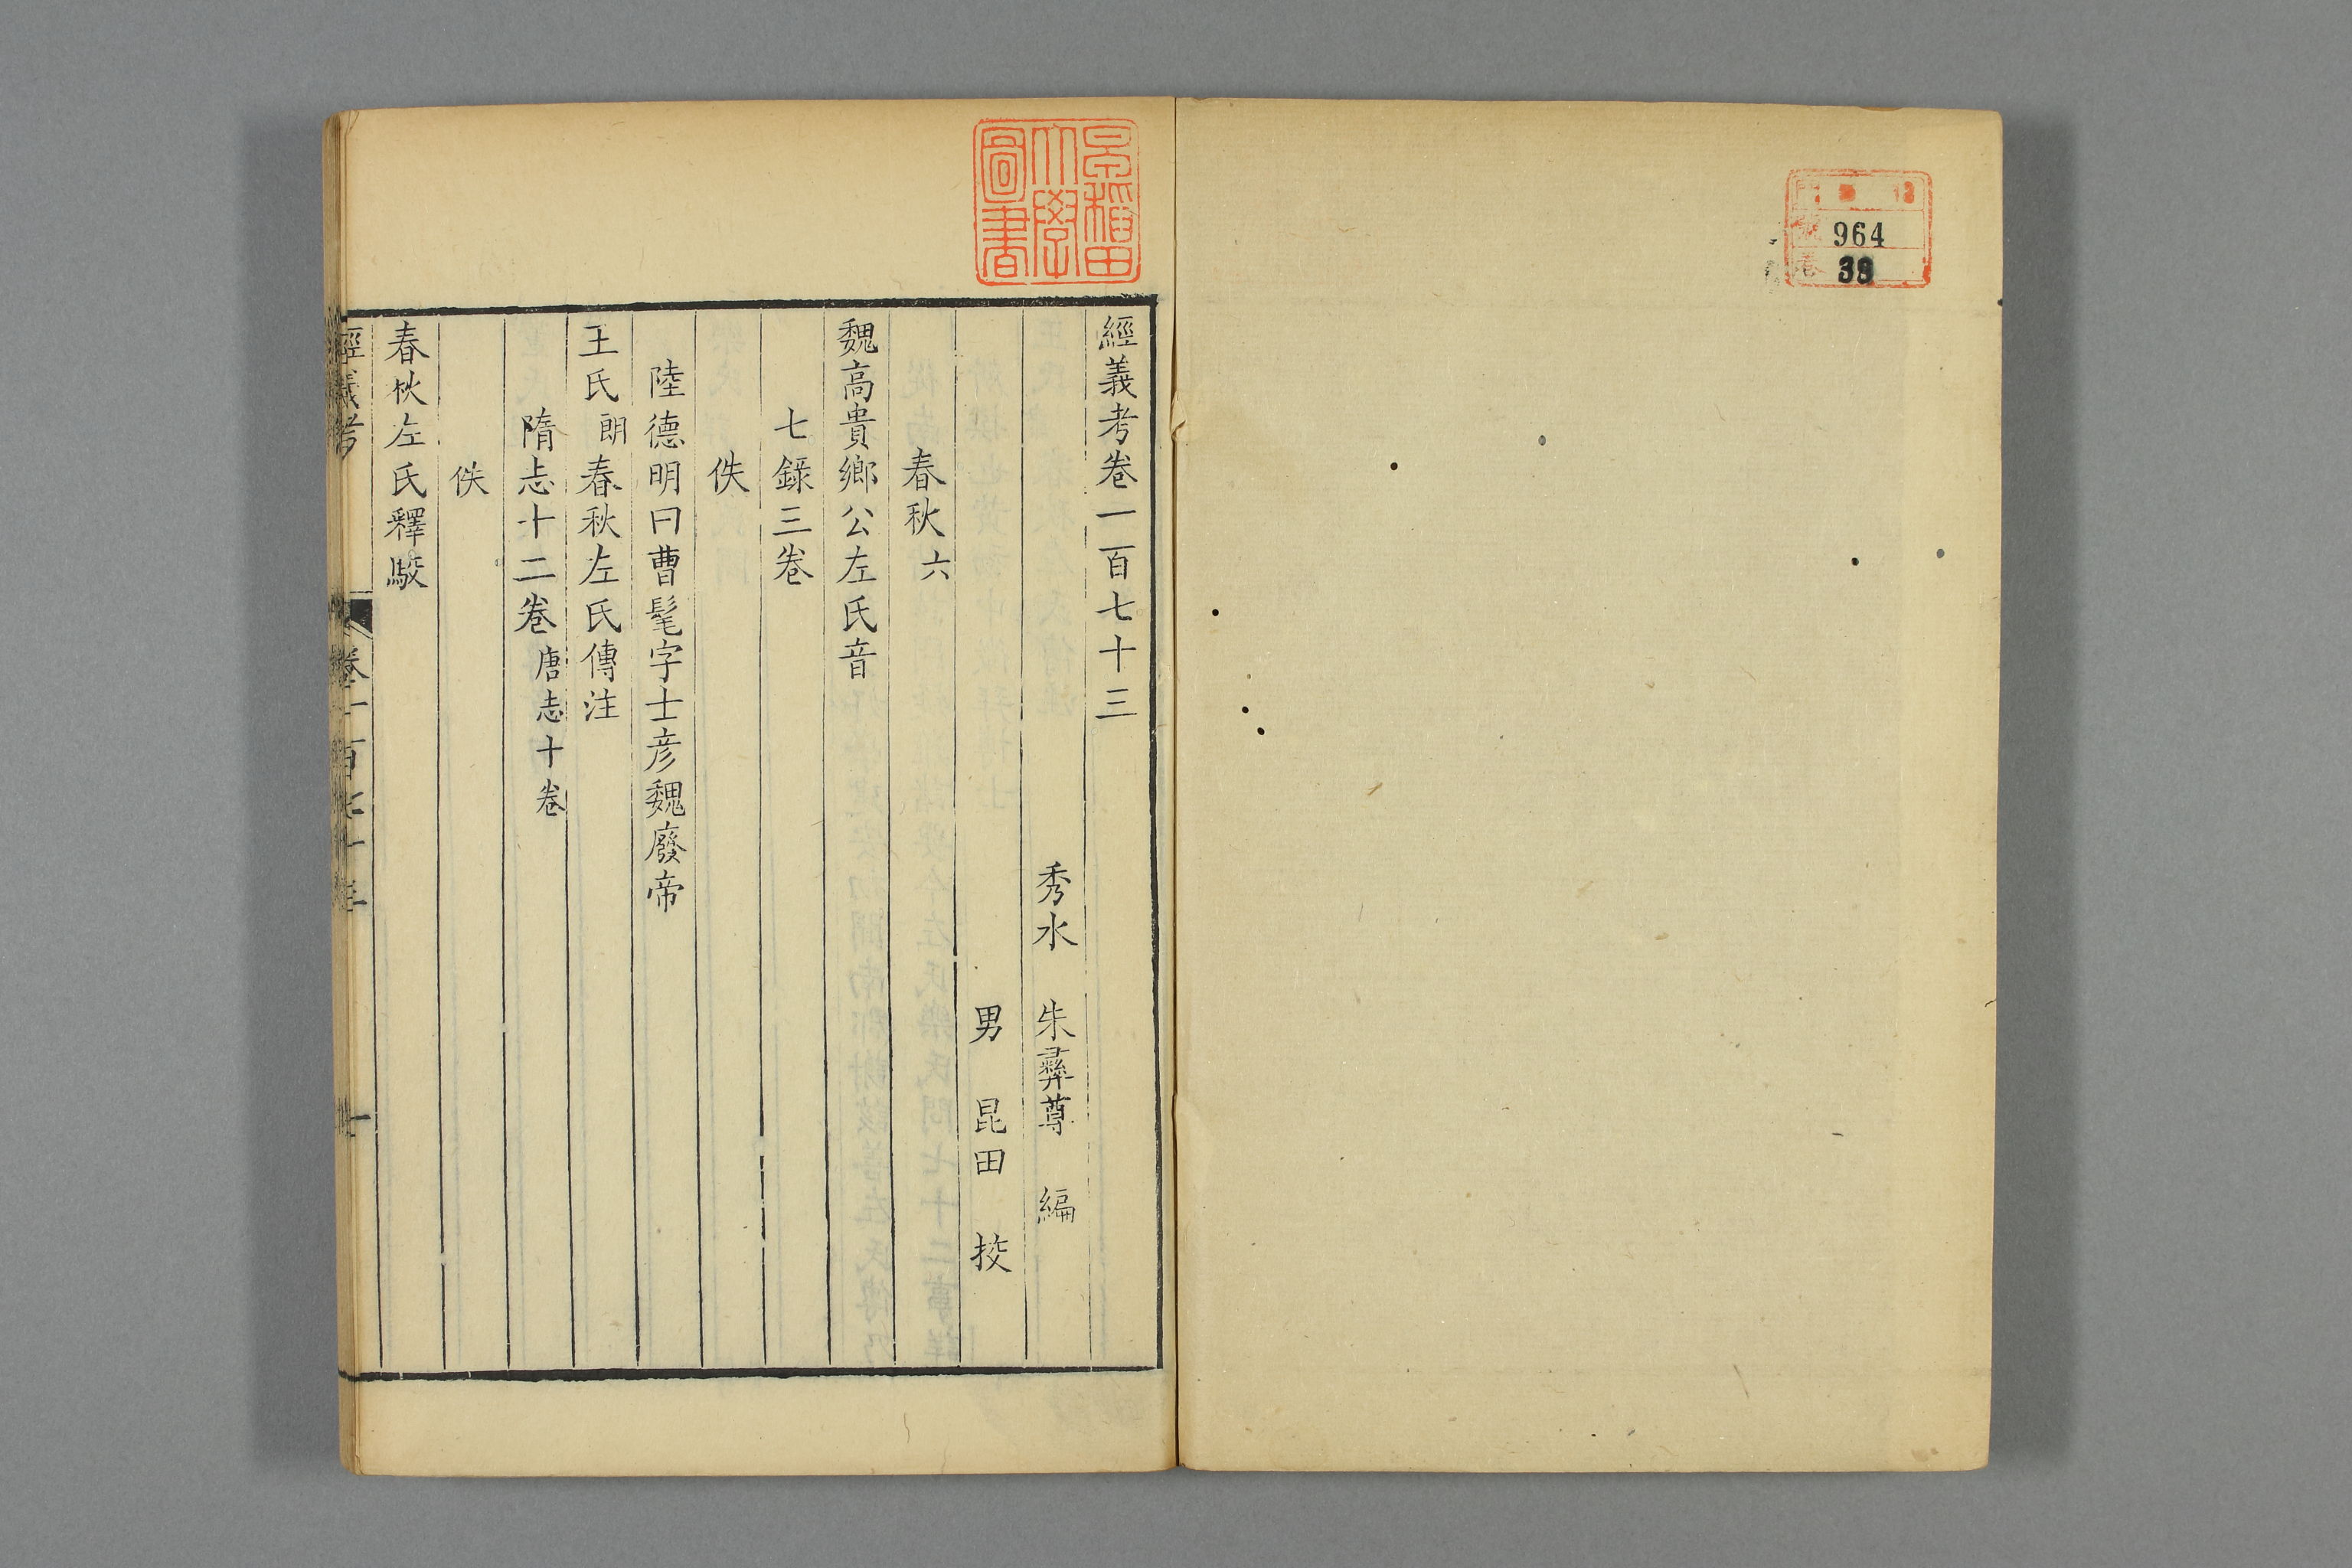 964
39
早稻田大學圖書
經義考卷一百七十三
秀水 朱彝尊 編
男 昆田 挍
春秋六
魏高貴鄉公左氏音
七錄三卷
佚
陸德明曰曹髦字士彦魏廢帝
王氏朗春秋左氏傳注
隋志十二卷唐志十卷
佚
春秋左氏釋駁
經義考 卷一百七十三 一